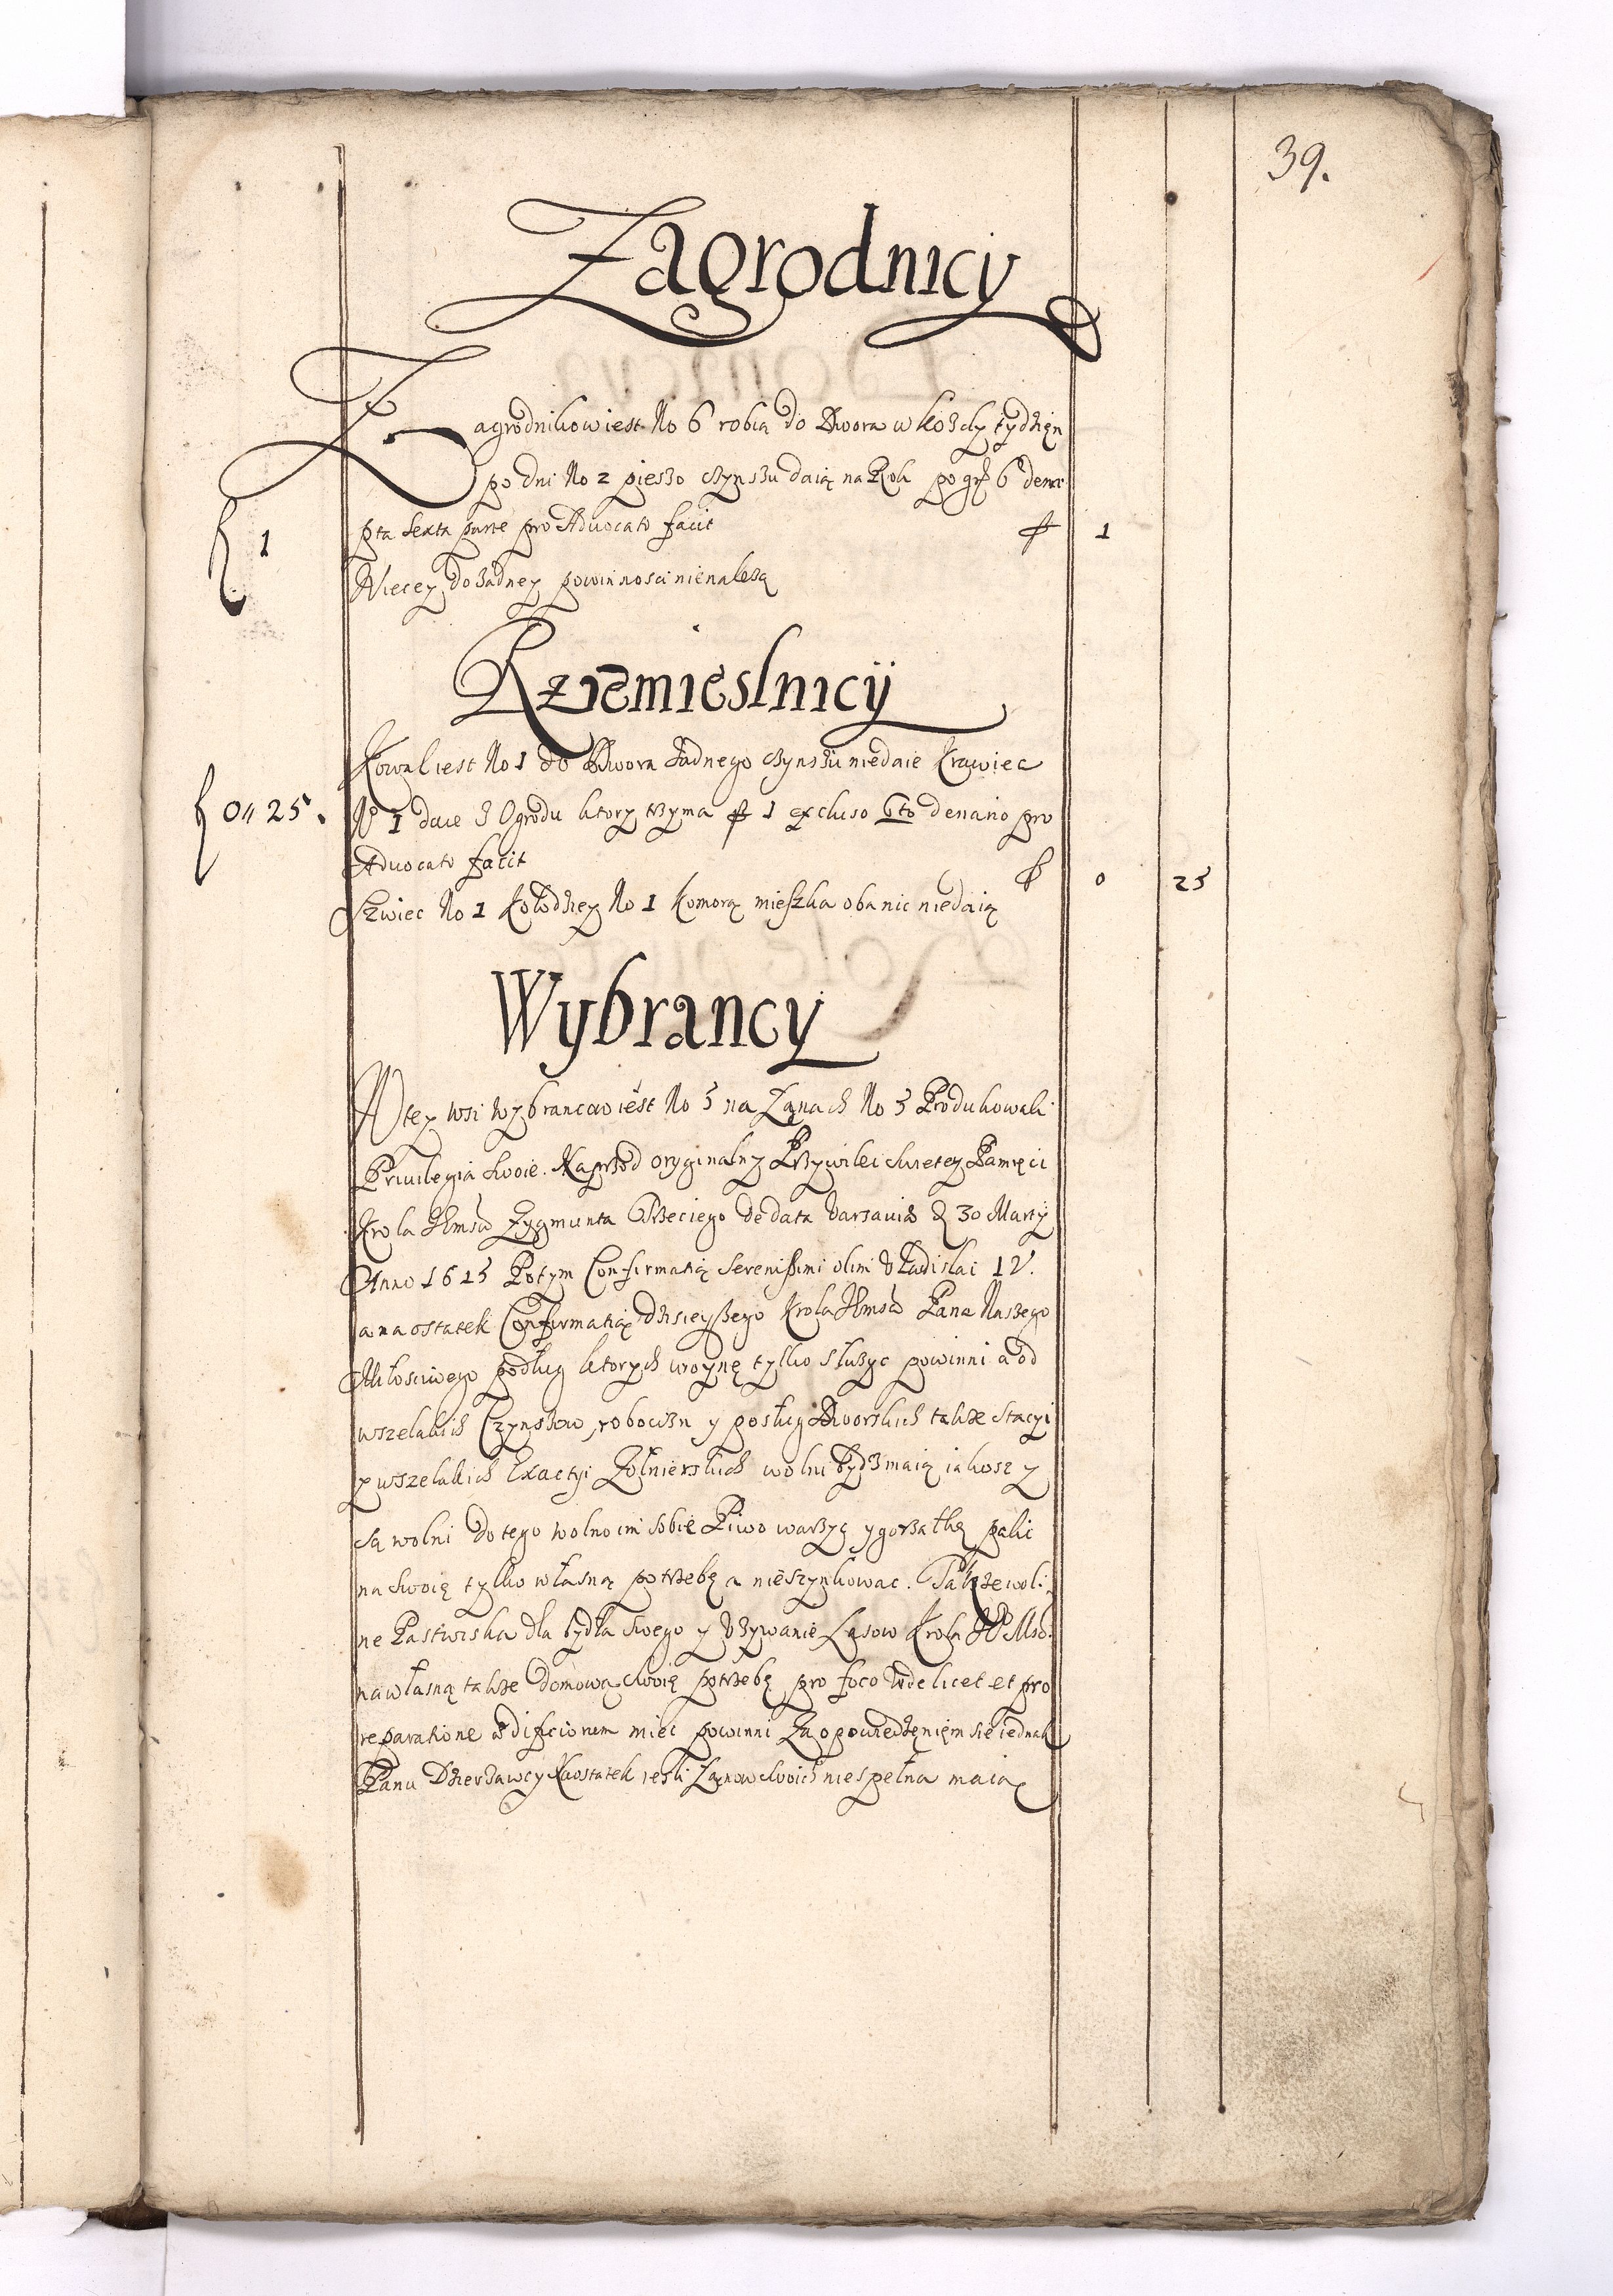 39.
Zagrodnicy
Zagrodnikow iest No 6 robią do Dwora w kożdy tydzień
po dni No 2 pieszo czynszu daią na Rok po gr 6 dem
pta sexta parte pro Advocato facit f 1
f 1
Więcey do żadney powinnosci nienależą
Rzemieslnicÿ
Kowal iest No 1 do Dwora żadnego czynszu niedaie Krawiec
f 0 // 25.
No 1 daie z Ogrodu ktory trzyma f 1 excluso 6to denario pro
Advocato facit f 0 25
Szwiec No 1 Kołodziey No 1 Komorą mieszka oba nic niedaią
Wybrancy
W tey wsi wybrancow iest No 5 na Łanach No 5 Produkowali
Privilegia swoie. Naprzod oryginalny Przywilei swietey Pamięci
Krola Jmści Zygmunta Trzeciego de data Varsaviæ D 30 Martÿ
Anno 1615 Potym Confirmatią Serenissimi olim Vładislai IV.
a na ostatek Confirmatią dzisieyszego Krola Jmści Pana Naszego
Miłosciwego podług ktorych woynę tylko służyc powinni a od
wszelakich Czynszow, robocizn y posług Dworskich także Stacyi
y wszelakich Exactyi Żołnierskich wolni bydz maią iakosz y
są wolni do tego wolno im sobie Piwo warzyc y gorzałkę palic
na swoię tylko własną potrzebę a nieszynkowac. Także wol:
ne Pastwiska dla bydła swego y Używanie Lasow Krola JMsci
na własną także domową swoię potrzebę pro foco videlicet et pro
reparatione ædificiorum miec powinni Za opowiedzeniem się iednak
Panu Dzierżawcy Naostatek iesli Łanow swoich niespełna maią